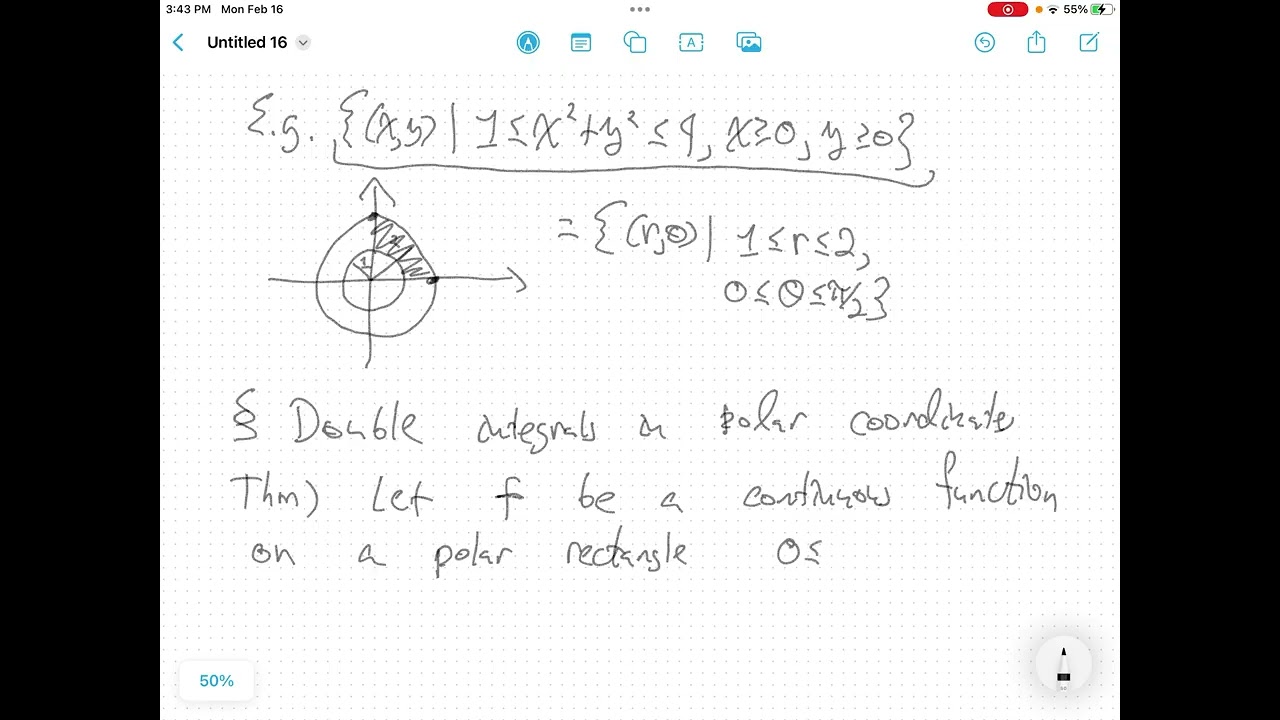 3:43 PM Mon Feb 16
55%
Untitled 16
A
E.g. {(x,y) | 1 ≤ x² + y² ≤ 4, x ≥ 0, y ≥ 0}
1
= {(r,θ) | 1 ≤ r ≤ 2,
0 ≤ θ ≤ π/2}
§ Double integrals in polar coordinate
Thm) Let f be a continuous function
on a polar rectangle 0 ≤
50%